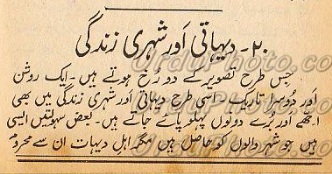 ۲۰۔ دیہاتی اور شہری زندگی
جس طرح تصویر کے دو رُخ ہوتے ہیں۔ ایک روشن
اور دُوسرا تاریک۔ اسی طرح دیہاتی اور شہری زندگی میں بھی
اچھے اور بُرے دونوں پہلو پائے جاتے ہیں۔ بعض سہولتیں ایسی
ہیں جو شہر والوں کو حاصل ہیں مگر اہل دیہات ان سے محروم